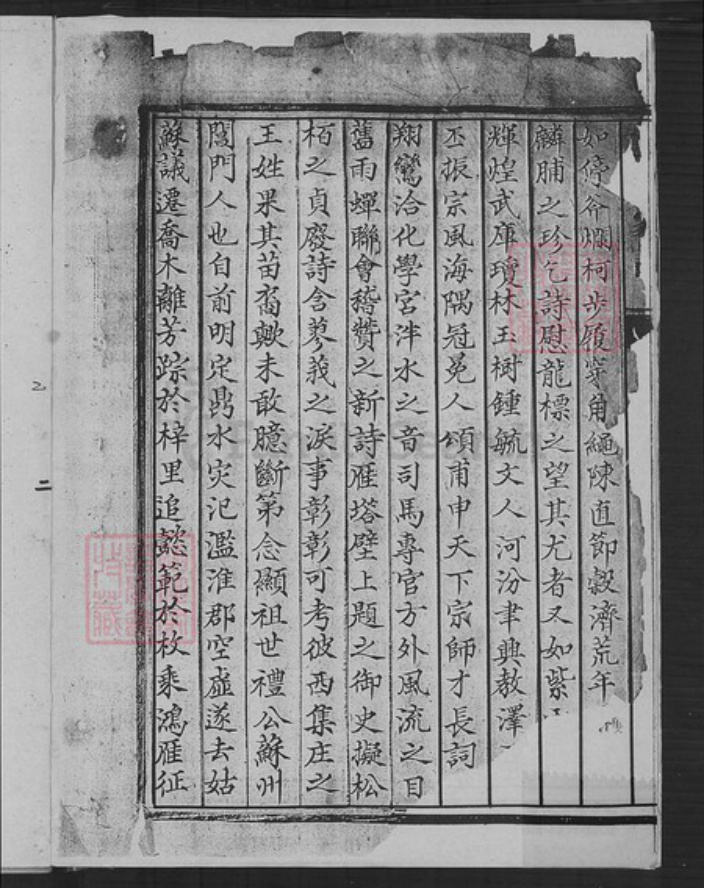 如停谷爛柯步履穿角繩陳直節穀濟荒年
麟脯之珍乞詩慰龍標之望其尤者又如紫
輝煌武庫瓊林玉樹鍾毓文人河汾聿興教澤
丕振宗風海隅冠冕人頌甫申天下宗師才長詞
翔鸞洽化學宮泮水之音司馬專官方外風流之目
舊雨蟬聯會稽贊之新詩雁塔壁上題之御史擬松
栢之貞廢詩含蓼莪之淚事彰彰可考彼西集庄之
王姓果其苗裔歟未敢臆斷第念顯祖世禮公蘇州
閶門人也自前明定鼎水灾汜濫淮郡空虛遂去姑
蘇議遷喬木離芳踪於梓里追懿範於枚乘鴻雁征
二